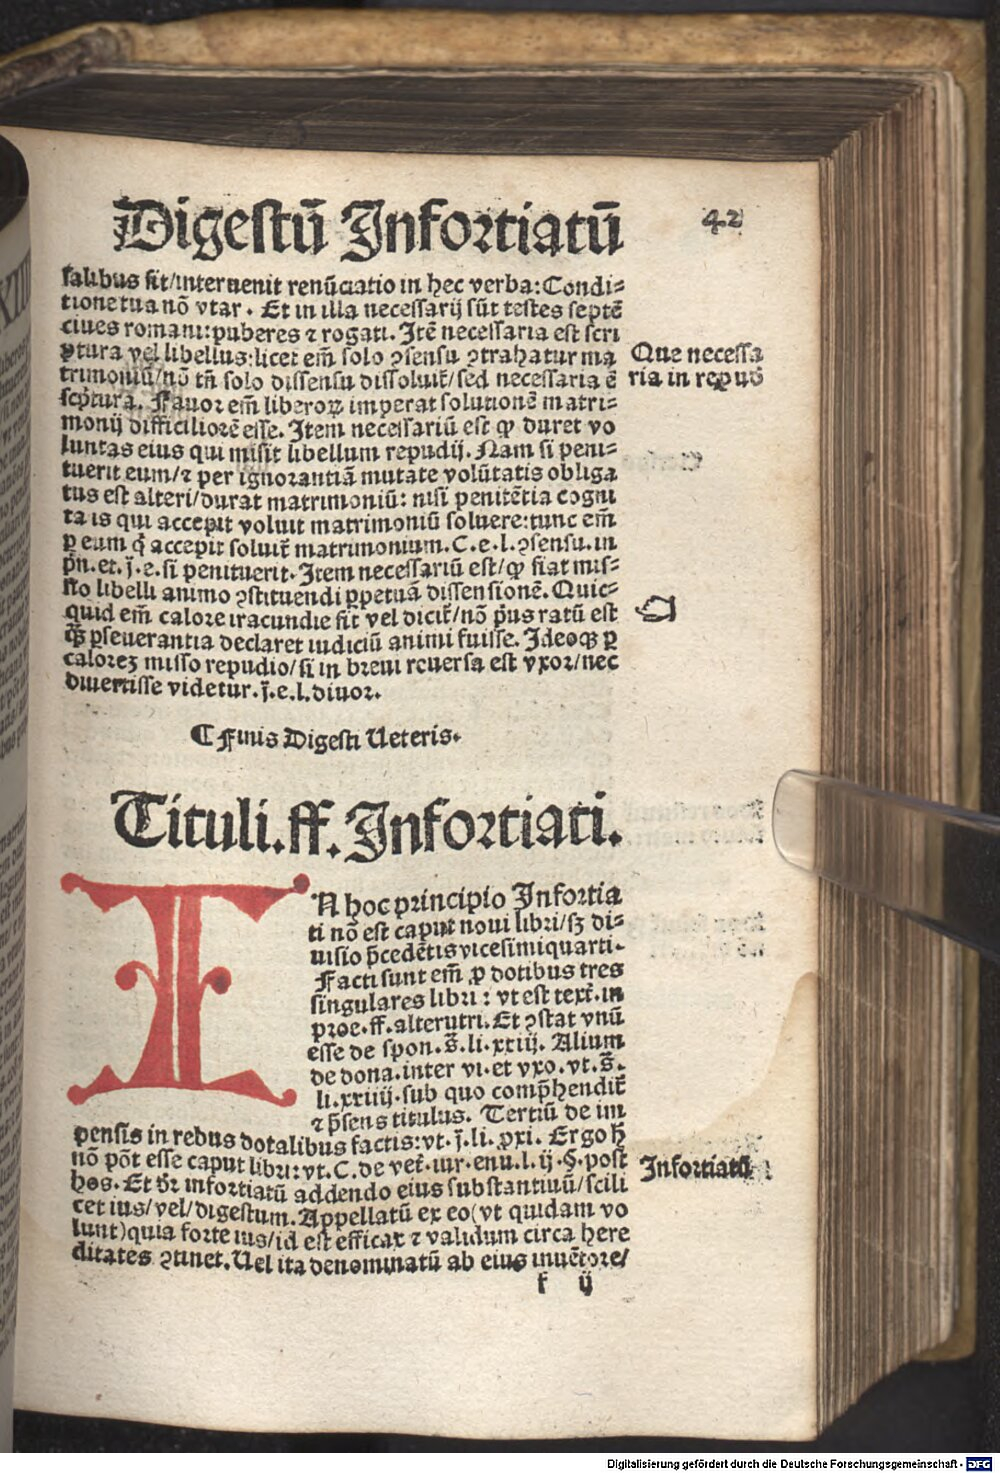 Digestū Infortiatū
42
salibus fit/interuenit renūciatio in hec verba: Condi⸗
tione tua nō vtar. Et in illa necessarij sūt testes septē
ciues romani: puberes ⁊ rogati. Itē necessaria est scri
ptura vel libellus: licet em̄ solo ꝯsensu ꝯtrahatur ma
trimoniū/nō tn̄ solo dissensu dissoluit̄/sed necessaria ē
scptura. Fauor em̄ liberoꝝ imperat solutionē matri⸗
monij difficiliorē esse. Item necessariū est ꝙ duret vo
luntas eius qui misit libellum repudij. Nam si peni⸗
tuerit eum/⁊ per ignorantiā mutate volūtatis obliga
tus est alteri/durat matrimoniū: nisi penitētia cogni
ta is qui accepit voluit matrimoniū soluere: tunc em̄
ꝑ eum q̇ accepit soluit̄ matrimonium. C. e. l. ꝯsensu. in
pn̄. et. j̄. e. si penituerit. Item necessariū est/ꝙ fiat mis⸗
sio libelli animo ꝯstituendi ꝑpetuā dissensionē. Quic⸗
quid em̄ calore iracundie fit vel dicit̄/nō pͥus ratū est
qꝫ̄ ꝑseuerantia declaret iudiciū animi fuisse. Ideoqꝫ ꝑ
caloreꝫ misso repudio/si in breui reuersa est vxor/nec
diuertisse videtur. j̄. e. l. diuor.
Que necessa
ria in repud̄
¶ Finis Digesti Ueteris.
Tituli. ff. Infortiati.
IN hoc principio Infortia
ti nō est caput noui libri/sꝫ di⸗
uisio p̄cedētis vicesimiquarti.
Facti sunt em̄ ꝓ dotibus tres
singulares libri: vt est text̄. in
proe. ff. alterutri. Et ꝯstat vnū
esse de spon. s̄. li. xxiij. Alium
de dona. inter vi. et vxo. vt. s̄.
li. xxiiij. sub quo comp̄hendit̄
⁊ p̄sens titulus. Tertiū de im
pensis in rebus dotalibus factis: vt. j̄. li. xxi. Ergo h̄
nō pōt esse caput libri: vt. C. de vet̄. iur. enu. l. ij. §. post
hos. Et dr̄ infortiatū addendo eius substantiuū/scili
cet ius/vel/digestum. Appellatū ex eo (vt quidam vo
lunt) quia forte ius/id est efficax ⁊ validum circa here
ditates ꝯtinet. Uel ita denominatū ab eius inuētore/
Infortiatū
f ij
Digitalisierung gefördert durch die Deutsche Forschungsgemeinschaft - DFG